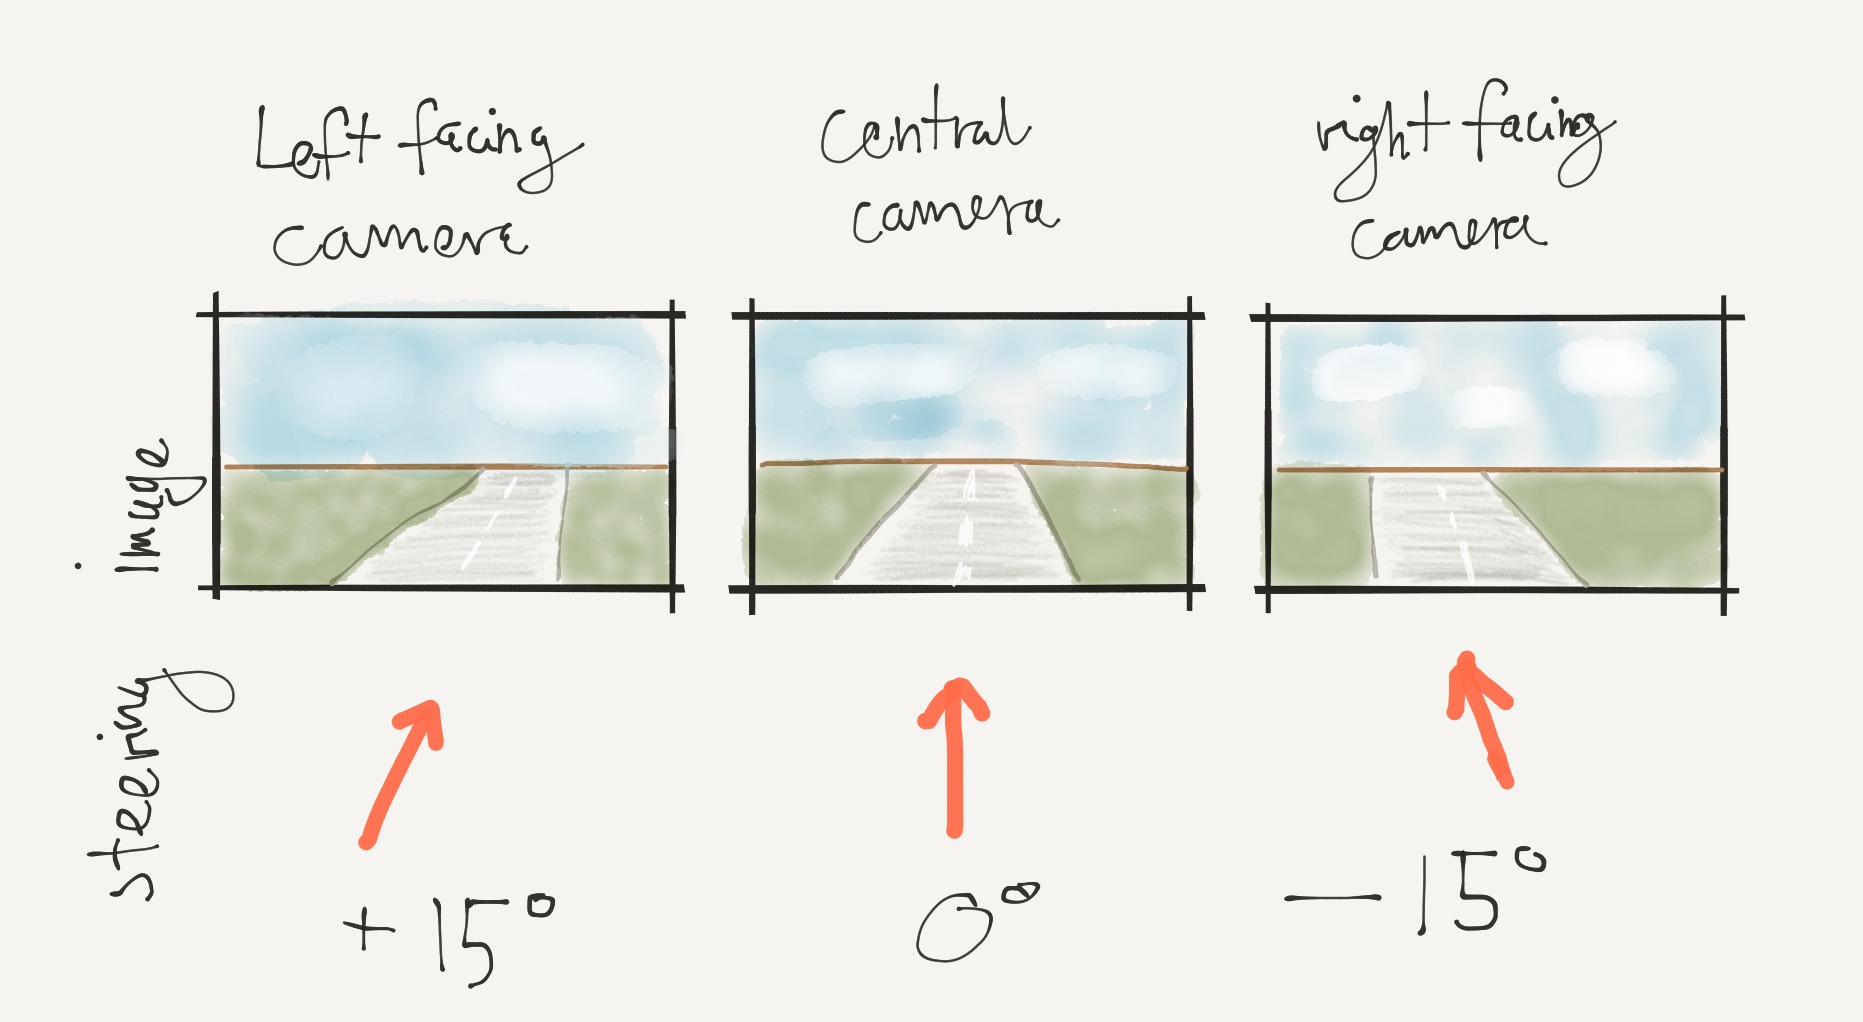 Left facing
camera
Central
camera
right facing
camera
Image
Steering
+ 15°
0°
- 15°